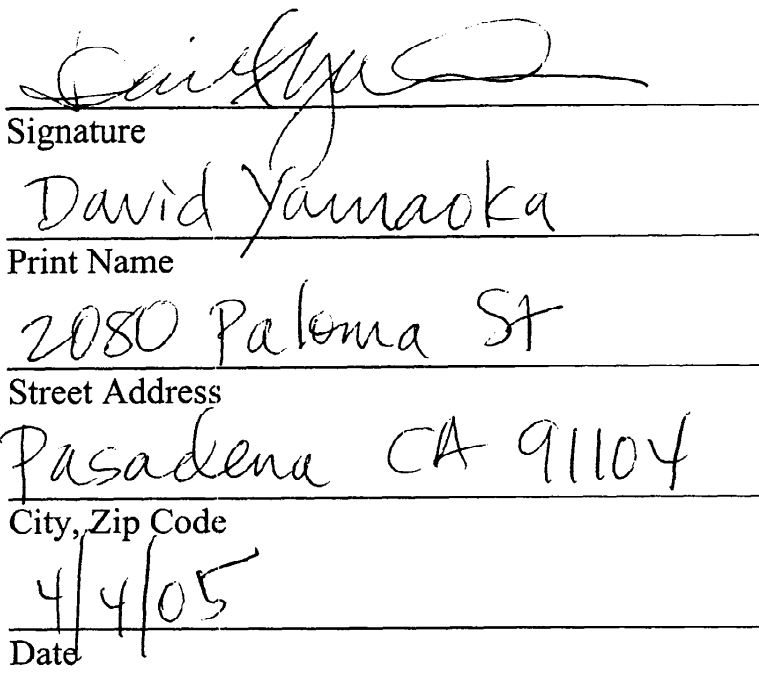 Signature
David Yamaoka
Print Name
2080 Paloma St
Street Address
Pasadena CA 91104
City, Zip Code
4/4/05
Date